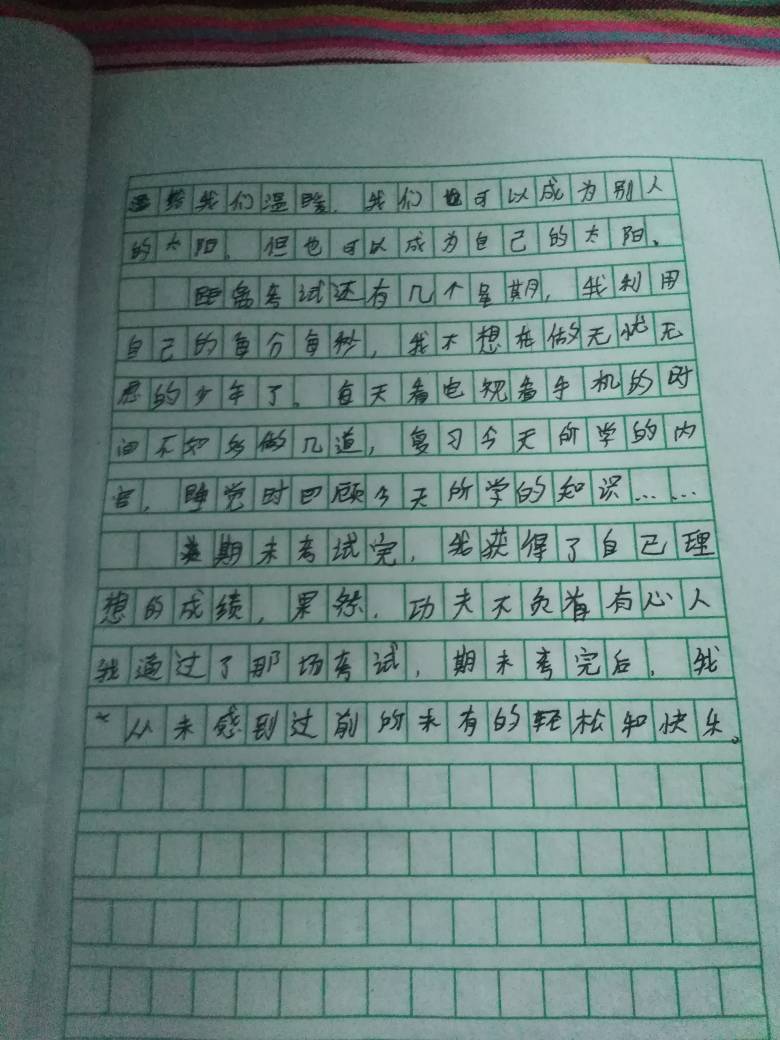 给我们温暖.我们也可以成为别人
的太阳。但也可以成为自己的太阳、
距离考试还有几个星期,我利用
自己的每分每秒,我不想在做无忧无
虑的少年了。每天看电视看手机的时
间不如多做几道,复习今天所学的内
容,睡觉时回顾今天所学的知识……
期末考试完,我获得了自己理
想的成绩,果然.功夫不负有心人
我通过了那场考试,期末考完后,我
从未感到过前所未有的轻松和快乐。